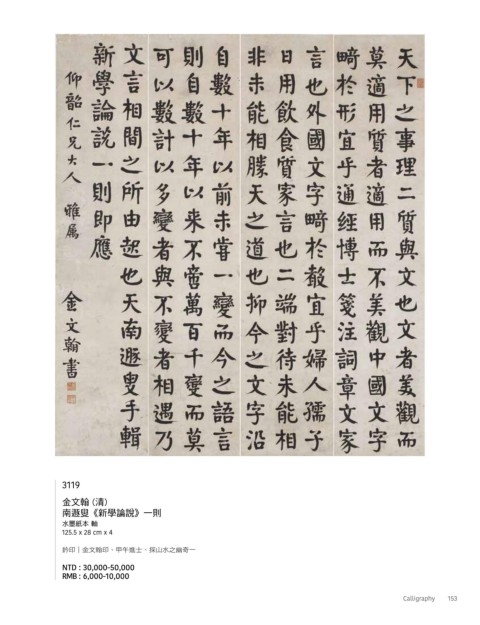 天下之事理二質與文也文者美觀而
莫適用質者適用而不美觀中國文字
畸於形宜乎通經博士箋注詞章文家
言也外國文字畸於殸宜乎婦人孺子
日用飲食質家言也二端對待未能相
非未能相勝天之道也抑今之文字沿
自數十年以前未嘗一變而今之語言
則自數十年以来不啻萬百千變而莫
可以數計以多變者與不變者相遇乃
文言相間之所由起也天南遯叟手輯
新學論説一則即應
仰韶仁兄大人 雅属 金文翰書
3119
金文翰 (清)
南遯叟《新學論說》一則
水墨紙本 軸
125.5 x 28 cm x 4
鈐印｜金文翰印、甲午進士、探山水之幽奇一
NTD : 30,000-50,000
RMB : 6,000-10,000
Calligraphy 153